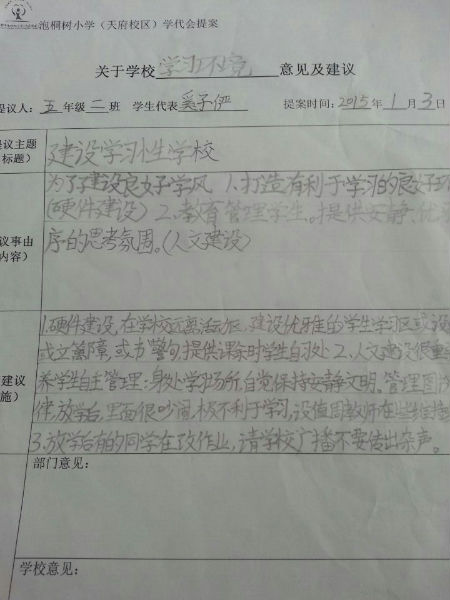 泡桐树小学（天府校区）学代会提案
关于学校 学习环境 意见及建议
提议人： 五 年级 二 班 学生代表 奚子俨 提案时间：2015 年 1 月 3 日
议主题
标题）
建设学习性学校
议事由
内容）
为了建设良好学风 1.打造有利于学习的良好环
（硬件建设）2.教育管理学生。提供安静优雅
序的思考氛围。（人文建设）
建议
施）
1.硬件建设，在学校远离活动区，建设优雅的学生学习区或设
或立鄣，或力警句，提供课余时学生自习处 2.人文建设很重
养学生自主管理：身处学习场所，自觉保持安静文明。管理图
律，放学后，里面很吵闹，极不利于学习，设值周教师在
3.放学后有的同学在改作业，请学校广播不要传出杂声。
部门意见：
学校意见：